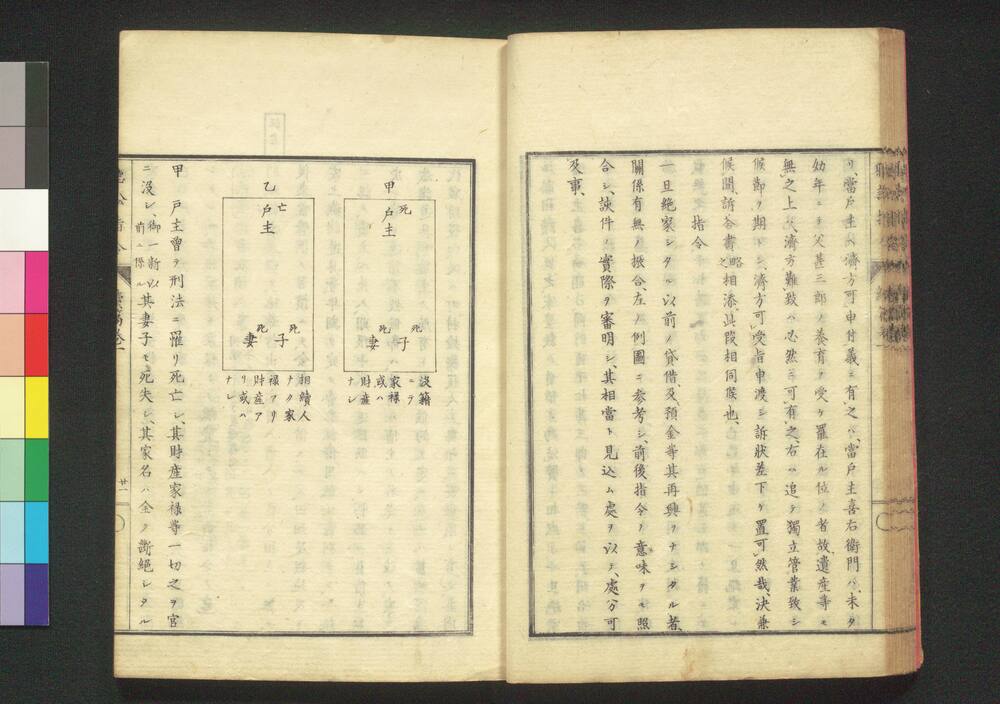 リ、當戸主ヘ濟方可申付義ニ有之ハ、當戸主喜右衛門ハ、未タ
幼年ニテ父甚三郎ノ養育ヲ受ケ罷在ル位ノ者故、遺産等モ
無之上ハ、濟方難致ハ必然ニ可有之、右ハ追テ獨立管業致シ
候節ヲ期トシ、濟方可受旨申渡シ、訴狀差下ケ置可然哉、決兼
候間、訴答書略之相添、此段相伺候也、
指令
一旦絶家シタル以前ノ貸借、及預金等其再興ヲナシタル者、
關係有無ノ掀合、左ノ例圖ニ參考シ、前後指令ノ意味ヲモ照
合シ、該件ノ實際ヲ審明シ、其相當ト見込ム處ヲ以テ、處分可
及事、
甲
死
戸主
死
子
死
妻
該籍
ニテ
家祿
或ハ
財産
ナシ
乙
亡
戸主
死
子
死
妻
相續人
ナク家
祿アリ
財産ア
リ或ハ
ナシ
甲 戸主曾ヲ刑法ニ罹リ死亡シ、其財産家祿等一切之ヲ官
ニ沒シ、御一新以前ニ係ル其妻子モ死失シ、其家名ハ全ク斷絶シタル
廿一